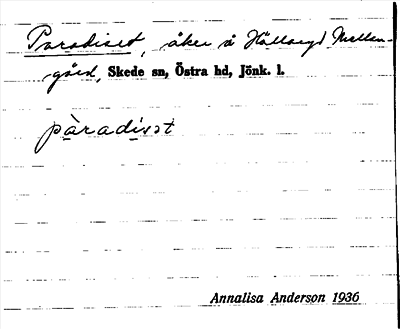 Paradiset, åker å Hållaryd Mellan-
gård, Skede sn, Östra hd, Jönk. l.
pàradisət
Annalisa Anderson 1936